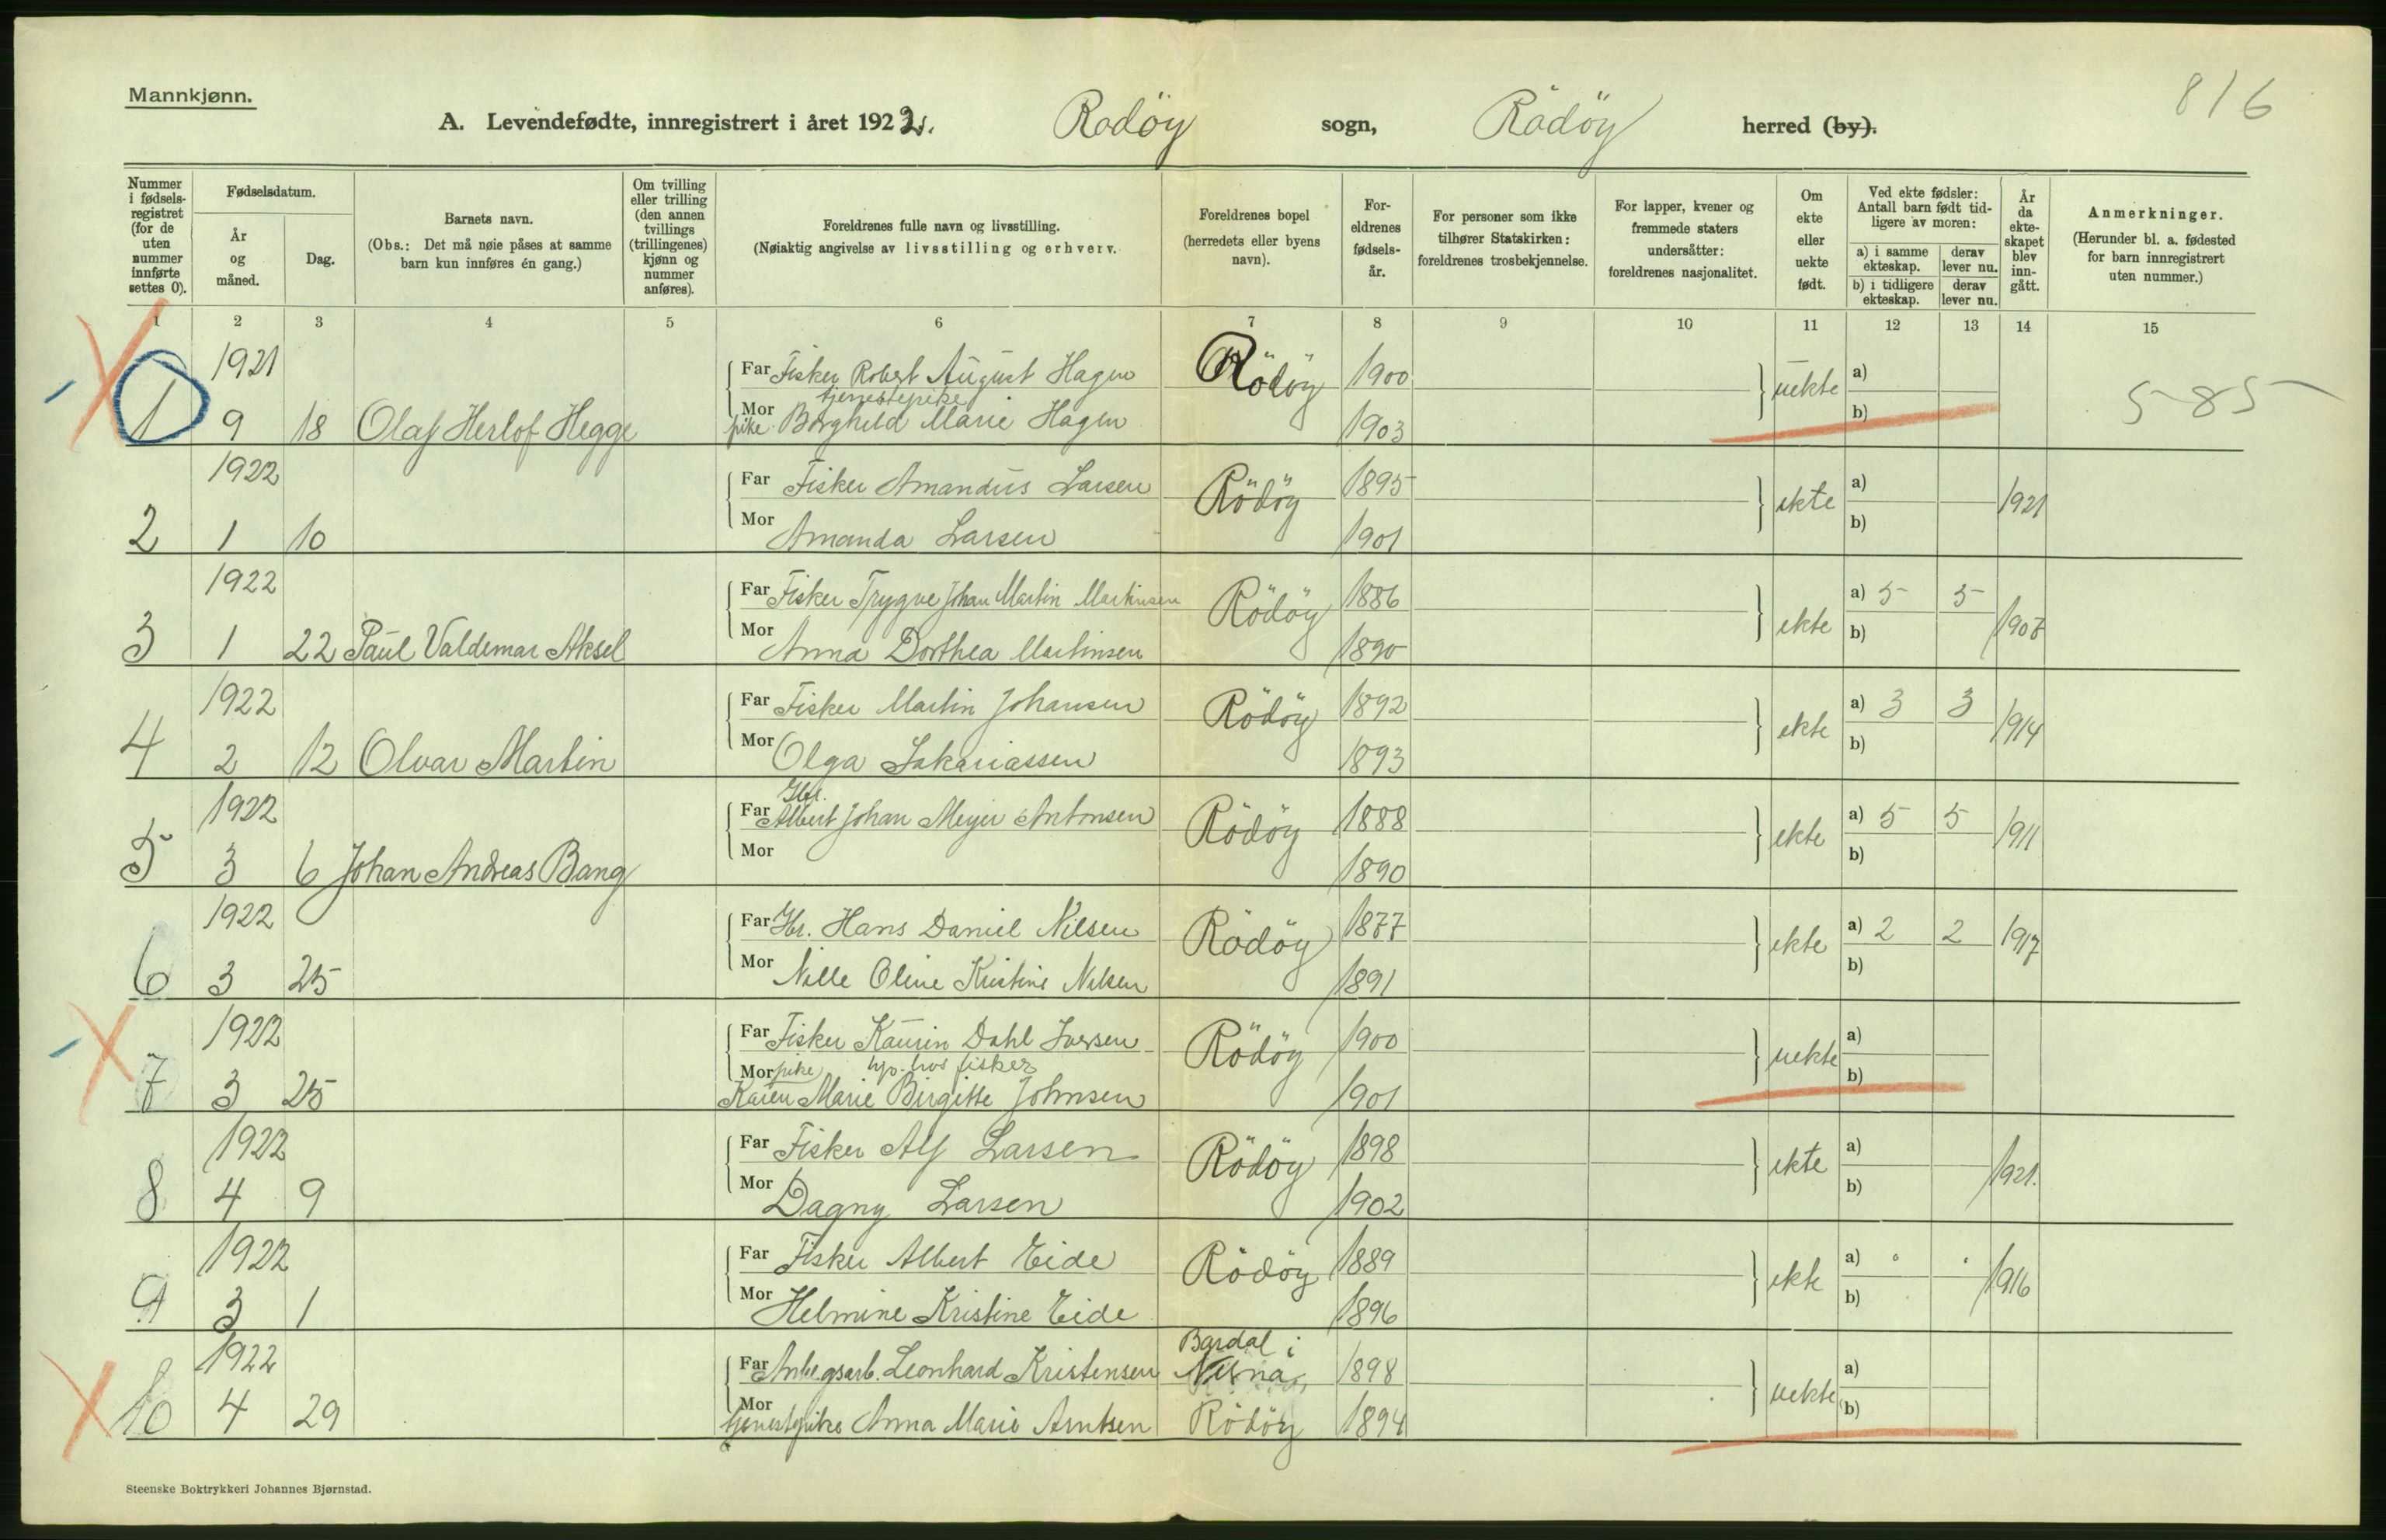 Mannkjønn.
816
A. Levendefødte, innregistrert i året 1922. Rödöy sogn, Rödöy herred (by).
Nummer i fødselsregistret (for de uten nummer innførte settes 0).
Fødselsdatum.
År og måned.
Dag.
Barnets navn.
(Obs.: Det må nøie påses at samme barn kun innføres én gang.)
Om tvilling eller trilling (den annen tvillings (trillingenes) kjønn og nummer anføres).
Foreldrenes fulle navn og livsstilling.
(Nøiaktig angivelse av livsstilling og erhverv.
Foreldrenes bopel (herredets eller byens navn).
Foreldrenes fødselsår.
For personer som ikke tilhører Statskirken: foreldrenes trosbekjennelse.
For lapper, kvener og fremmede staters undersåtter: foreldrenes nasjonalitet.
Om ekte eller uekte født.
Ved ekte fødsler: Antall barn født tidligere av moren:
a) i samme ekteskap. derav lever nu.
b) i tidligere ekteskap. derav lever nu.
År da ekteskapet blev inngått.
Anmerkninger.
(Herunder bl. a. fødested for barn innregistrert uten nummer.)
1 2 3 4 5 6 7 8 9 10 11 12 13 14 15
1921 Far Fisker Robert August Hagen Rödöy 1900 uekte a)
tjenestepike
1 9 18 Olaf Herlof Hegge Mor pike Borghild Marie Hagen 1903 b) 585
1922 Far Fisker Amandus Larsen Rödöy 1895 ekte a) 1921
2 1 10 Mor Amanda Larsen 1901 b)
1922 Far Fisker Trygve Johan Martin Martinsen Rödöy 1886 ekte a) 5 5 1908
3 1 22 Paul Valdemar Aksel Mor Anna Dorthea Martinsen 1890 b)
1922 Far Fisker Martin Johansen Rödöy 1892 ekte a) 3 3 1914
4 2 12 Olvar Martin Mor Olga Sakariassen 1893 b)
1922 Far Gbr. Albert Johan Meyer Antonsen Rödöy 1888 ekte a) 5 5 1911
5 3 6 Johan Andreas Bang Mor 1890 b)
1922 Far Gbr. Hans Daniel Nilsen Rödöy 1877 ekte a) 2 2 1917
6 3 25 Mor Nille Oline Kristine Nilsen 1891 b)
1922 Far Fisker Kaurin Dahl Iversen Rödöy 1900 uekte a)
Mor pike hjp. hos fisker
7 3 25 Karen Marie Birgitte Johnsen 1901 b)
1922 Far Fisker Alf Larsen Rödöy 1898 ekte a) 1921.
8 4 9 Mor Dagny Larsen 1902 b)
1922 Far Fisker Albert Eide Rödöy 1889 ekte a) 1916
9 3 1 Mor Helmine Kristine Eide 1896 b)
Bardal i
1922 Far Anlegsarb. Leonhard Kristensen Nesna 1898 uekte a)
10 4 29 Mor tjenestepike Anna Marie Arntsen Rödöy 1894 b)
Steenske Boktrykkeri Johannes Bjørnstad.